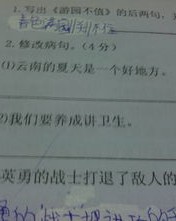 1. 写出《游园不值》的后两句,
春色满园关不住
2. 修改病句。(4分)
(1)云南的夏天是一个好地方。
2)我们要养成讲卫生。
英勇的战士打退了敌人的